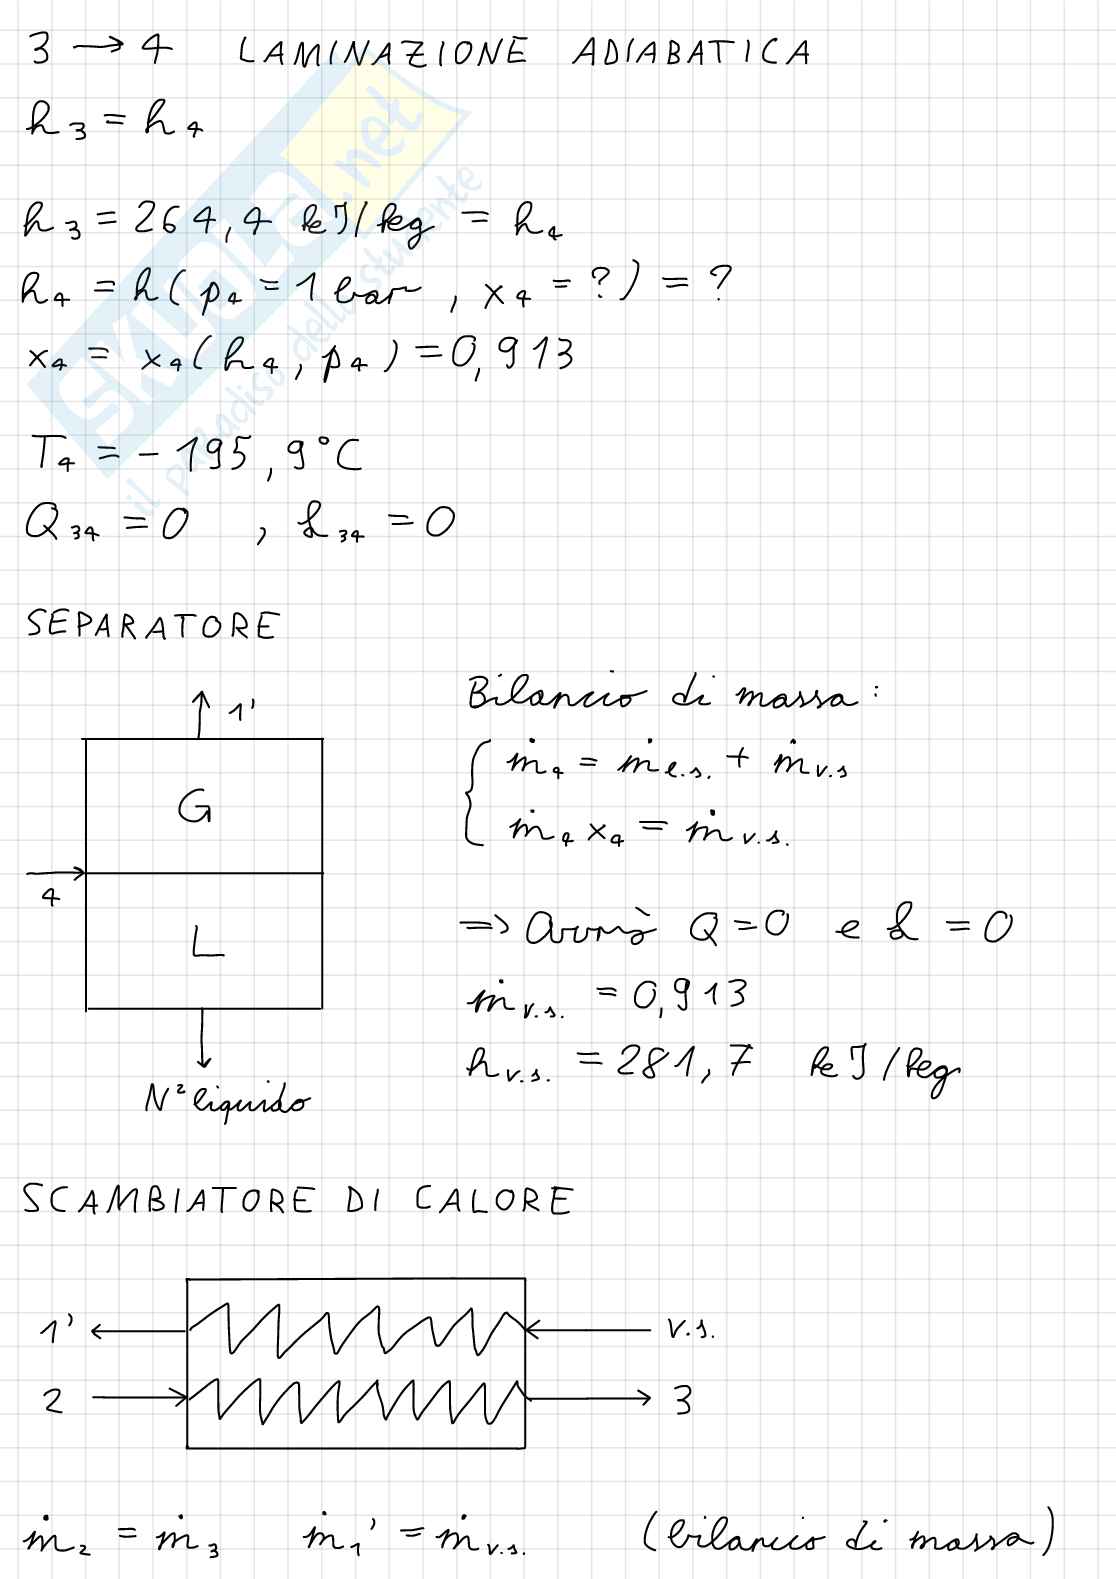 3 → 4 LAMINAZIONE ADIABATICA
h₃ = h₄
h₃ = 264,4 kJ/kg = h₄
h₄ = h(p₄ = 1 bar, x₄ = ?) = ?
x₄ = x₄(h₄, p₄) = 0,913
T₄ = -195,9°C
Q₃₄ = 0 , L₃₄ = 0
SKUOLA.net
il paradiso dello studente
SEPARATORE
1'
G
4
L
N² liquido
Bilancio di massa:
ṁ₄ = ṁ l.s. + ṁ v.s
ṁ₄ x₄ = ṁ v.s.
=> Q = 0 e L = 0
ṁ v.s. = 0,913
h v.s. = 281,7 kJ/kg
SCAMBIATORE DI CALORE
1' v.s.
2 3
ṁ₂ = ṁ₃ ṁ₁' = ṁ v.s. (bilancio di massa)